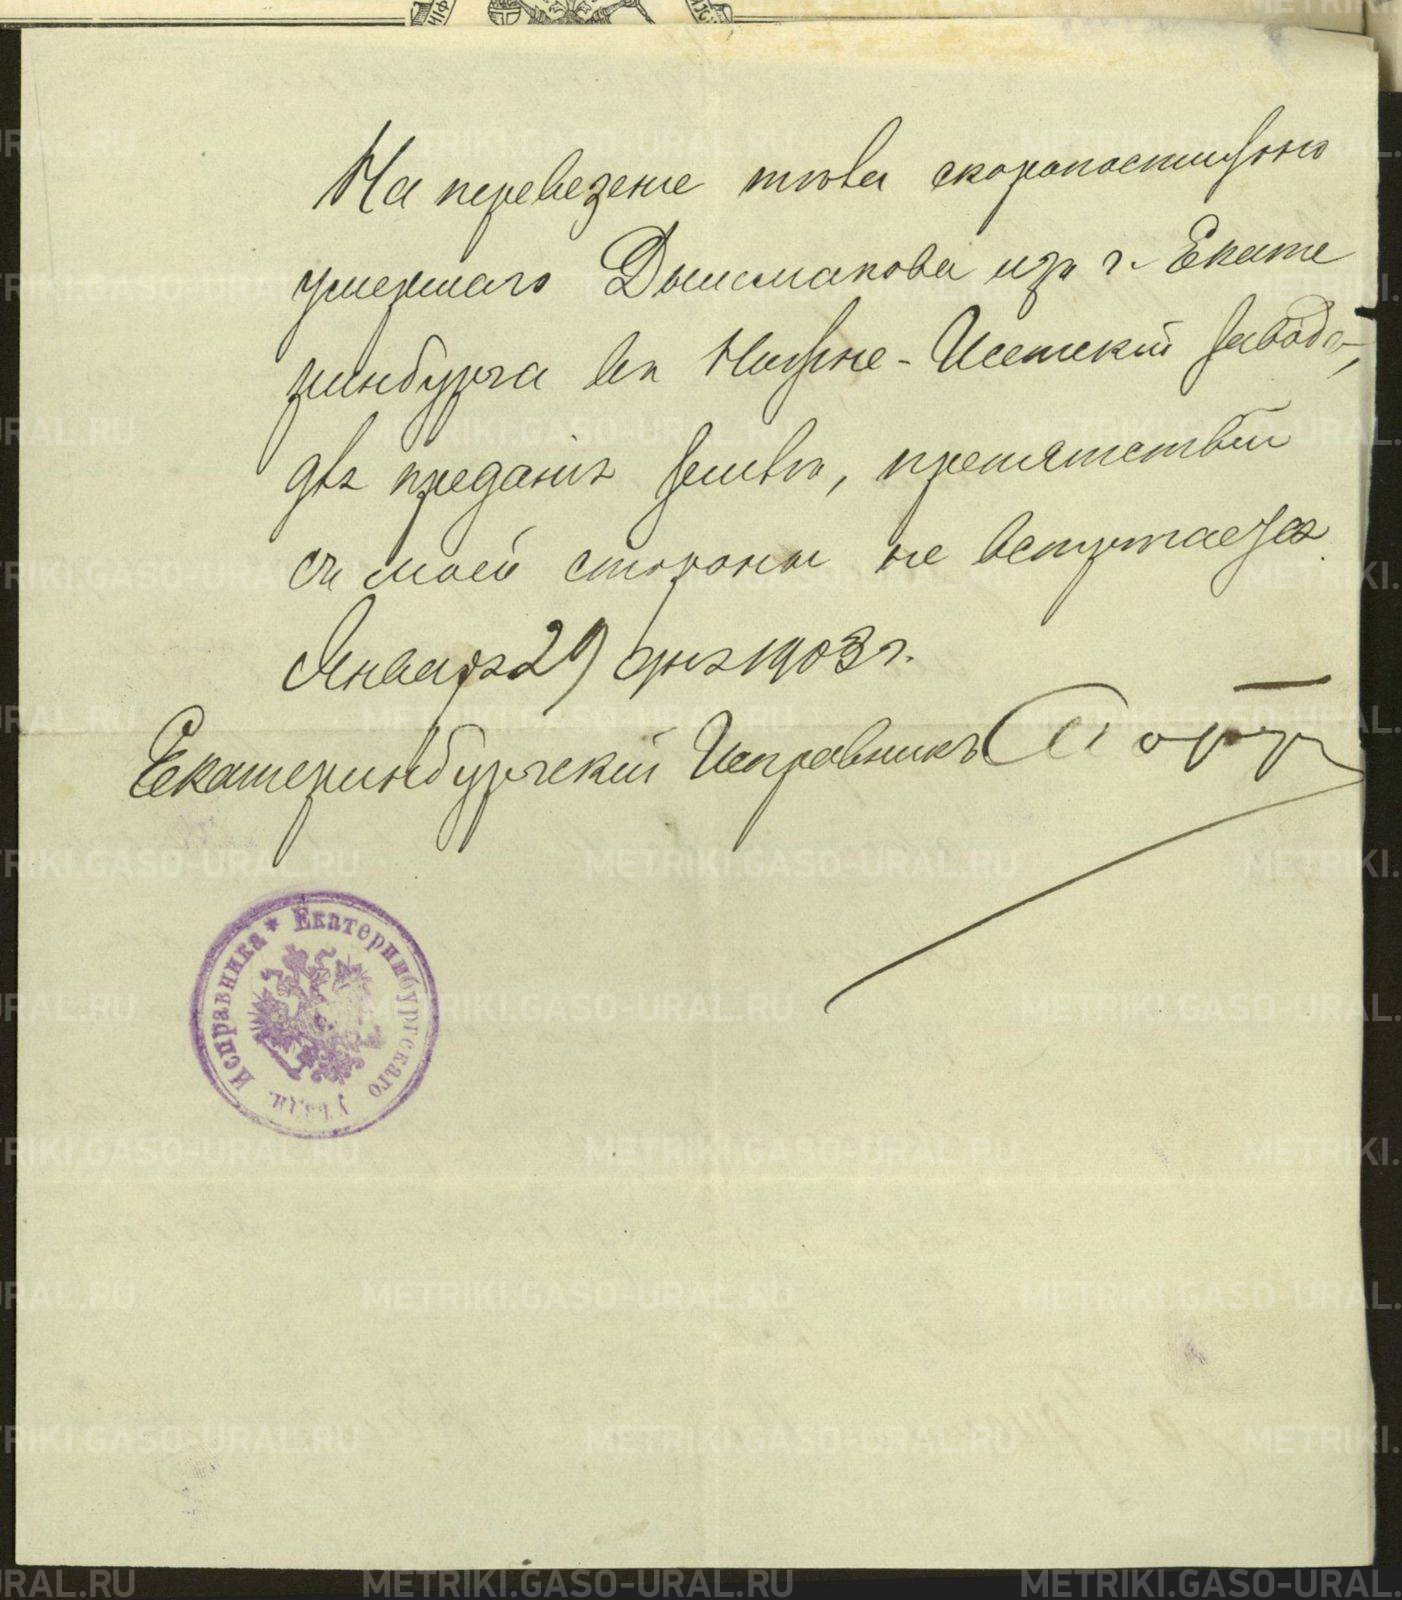 На перевезенie тѣла скоропостижно
умершаго Дылмакова изъ г. Екате
ринбурга въ Нижне-Исетскiй заводъ,
для преданiя землѣ, препятствiй
съ моей стороны не встречается
Января 29 дня 1903 г.
Екатеринбургскiй Исправникъ
* Екатеринбургскаго уѣздн. Исправника
METRIKI.GASO-URAL.RU